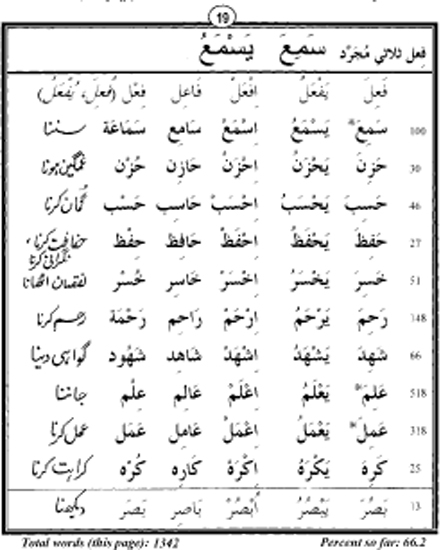 19
فعل ثلاثي مُجَرَّد سَمِعَ يَسْمَعُ
فَعِلَ يَفْعَلُ اِفْعَلْ فَاعِل فِعْل (فُعِلَ، يُفْعَلُ)
100 سَمِعَ* يَسْمَعُ اِسْمَعْ سَامِع سَمَاعَة سننا
30 حَزِنَ يَحْزَنُ اِحْزَنْ حَازِن حُزْن غمگین ہونا
46 حَسِبَ يَحْسَبُ اِحْسَبْ حَاسِب حَسْب گمان کرنا
27 حَفِظَ يَحْفَظُ اِحْفَظْ حَافِظ حِفْظ حفاظت کرنا، نگرانی کرنا
51 خَسِرَ يَخْسَرُ اِخْسَرْ خَاسِر خُسْر نقصان اٹھانا
148 رَحِمَ يَرْحَمُ اِرْحَمْ رَاحِم رَحْمَة رحم کرنا
66 شَهِدَ يَشْهَدُ اِشْهَدْ شَاهِد شَهُود گواہی دینا
518 عَلِمَ* يَعْلَمُ اِعْلَمْ عَالِم عِلْم جاننا
318 عَمِلَ* يَعْمَلُ اِعْمَلْ عَامِل عَمَل عمل کرنا
25 كَرِهَ يَكْرَهُ اِكْرَهْ كَارِه كُرْه کراہت کرنا
13 بَصُرَ يَبْصُرُ اُبْصُرْ بَاصِر بَصَر دیکھنا
Total words (this page): 1342 Percent so far: 66.2